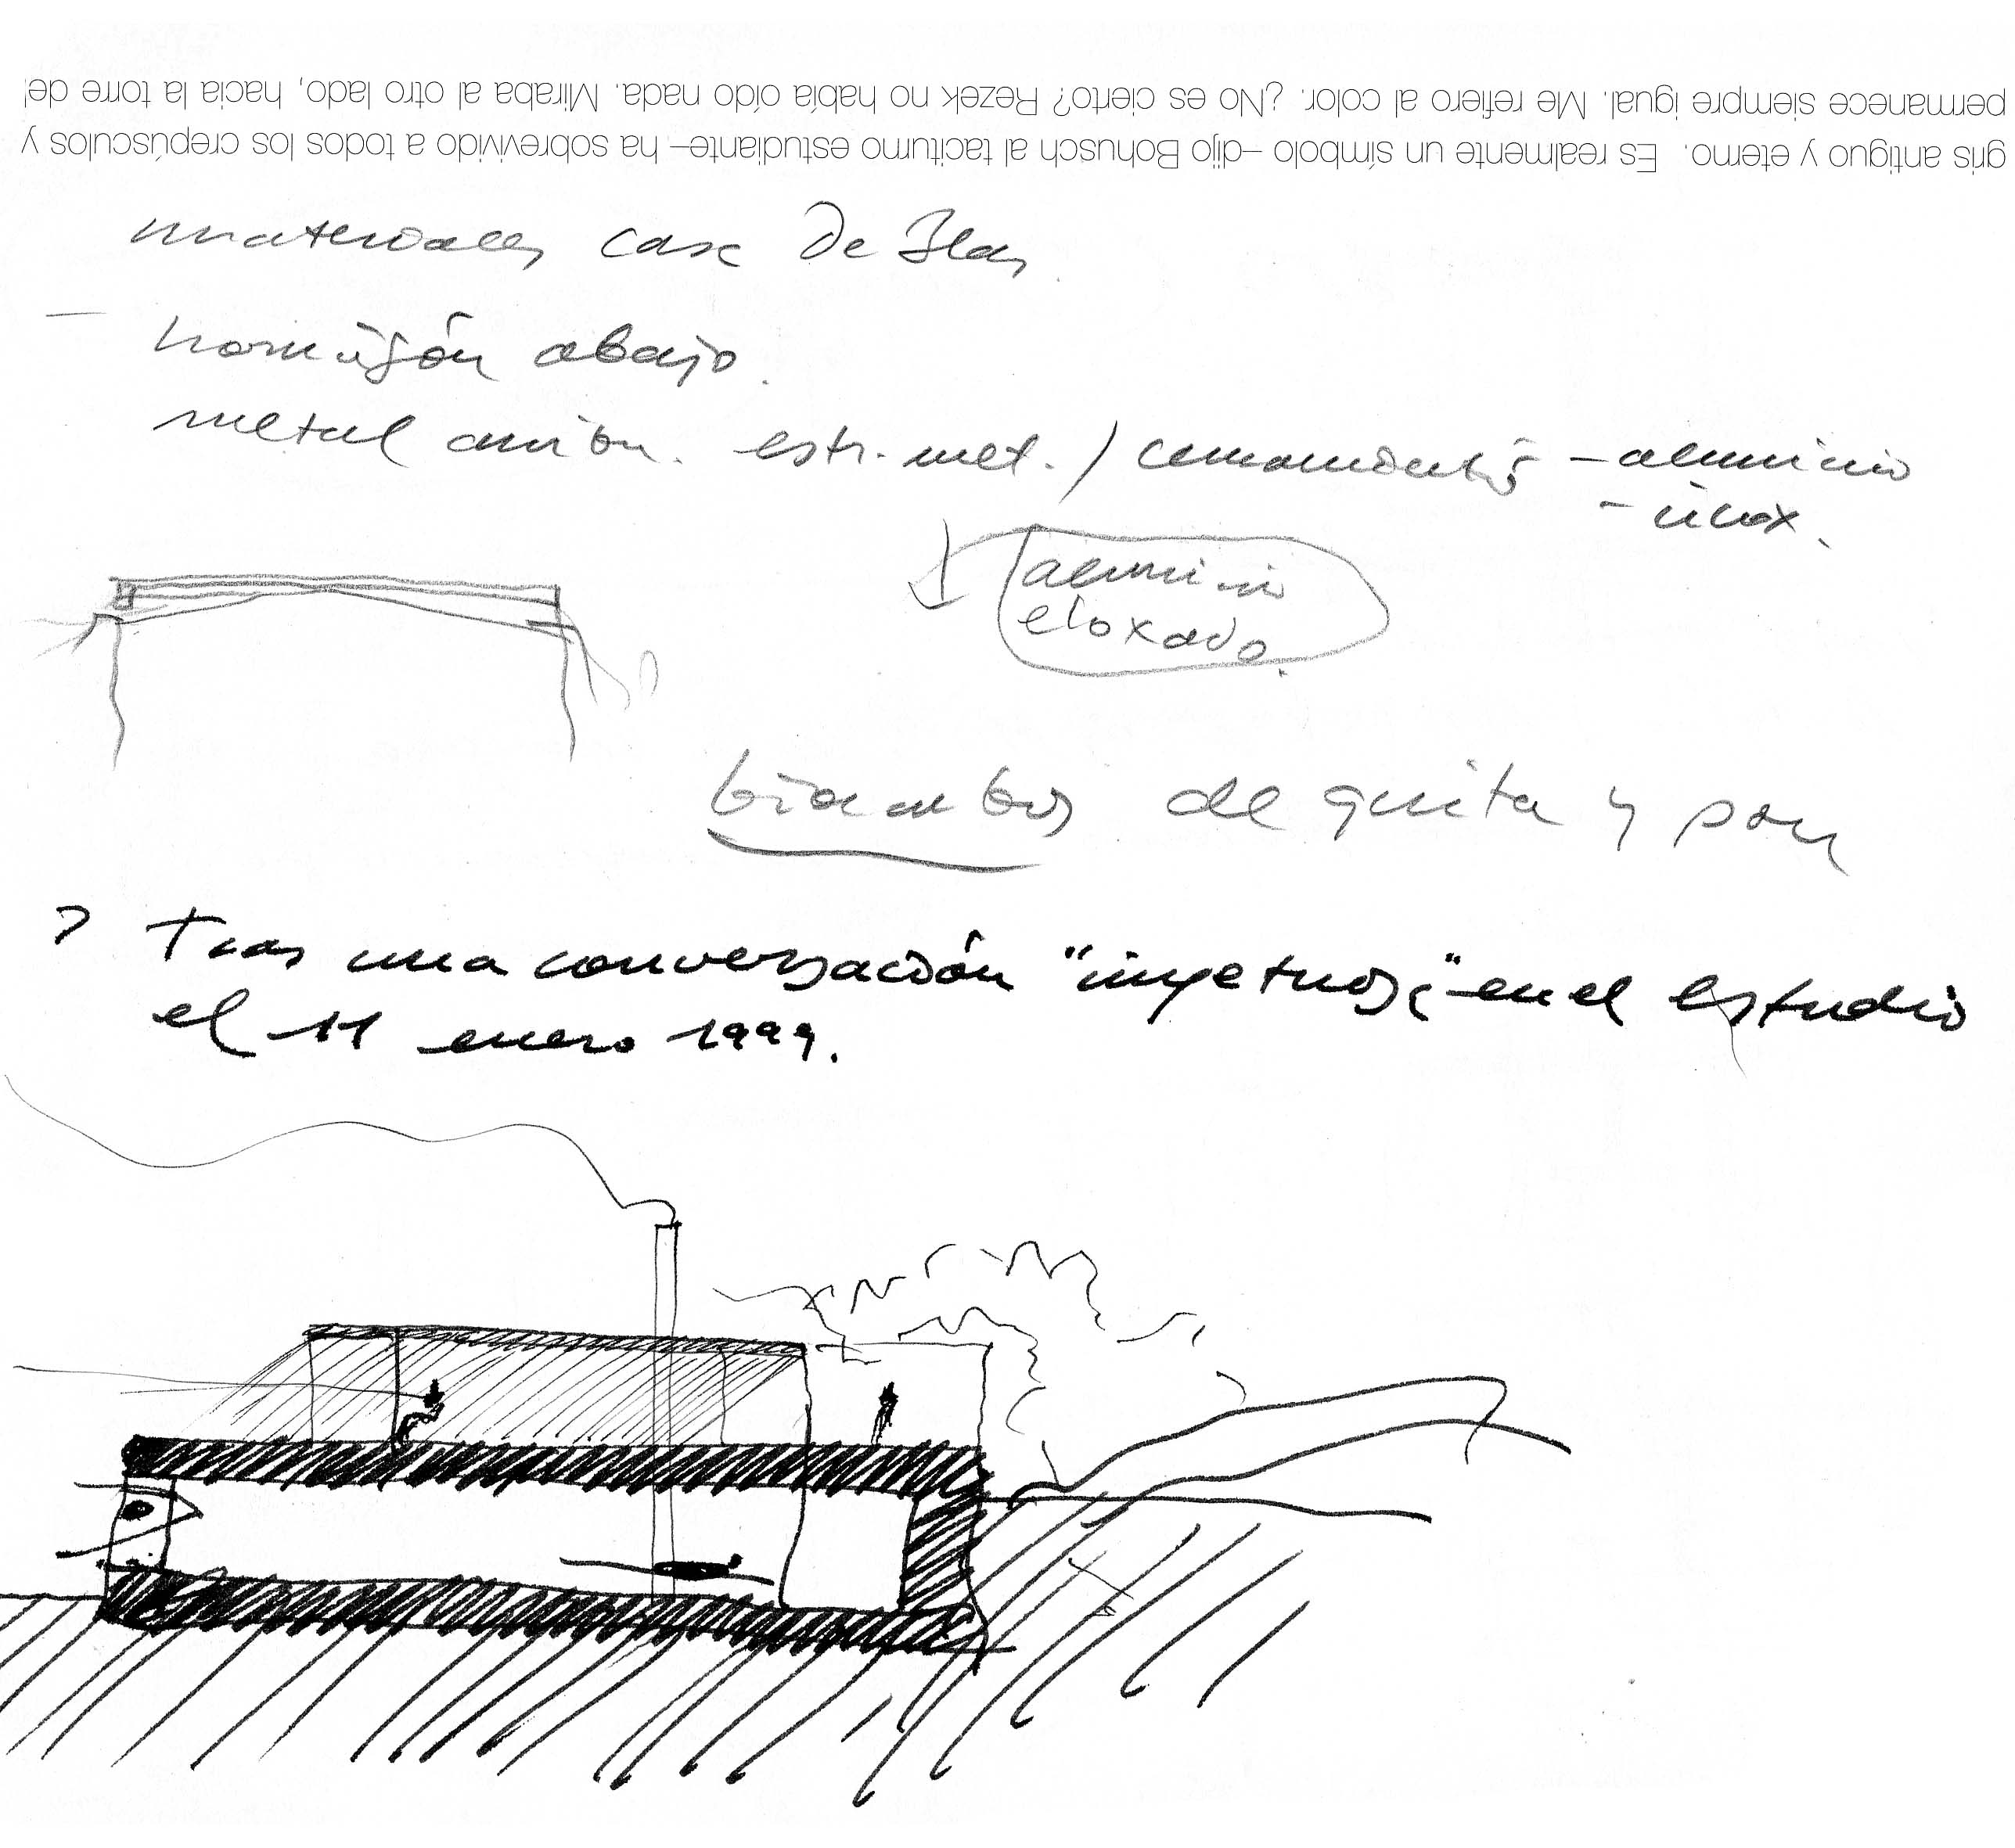 gris antiguo y eterno. Es realmente un símbolo –dijo Bohusch al taciturno estudiante– ha sobrevivido a todos los crepúsculos y
permanece siempre igual. Me refiero al color. ¿No es cierto? Rezek no había oído nada. Miraba al otro lado, hacia la torre de
materiales casa De Blas
— hormigón abajo.
metal arriba. estr. met. / cerramientos – aluminio
– inox.
aluminio
eloxado.
biombos de quita y pon
? Tras una conversación "impetuosa" en el estudio
el 11 enero 1999.